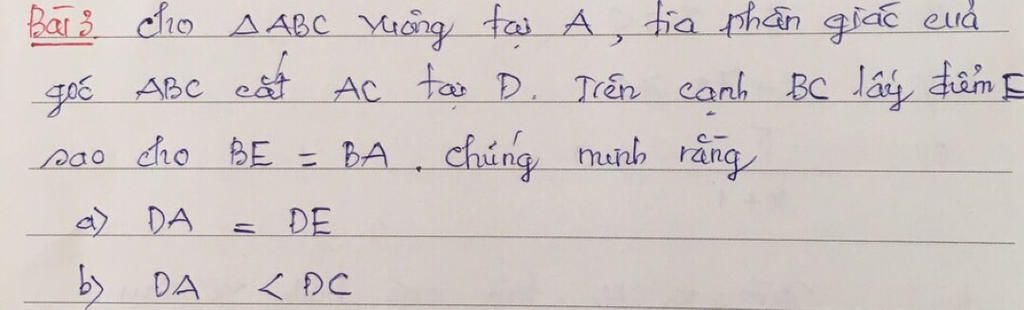 Bài 3. Cho △ABC vuông tại A, tia phân giác của
góc ABC cắt AC tại D. Trên cạnh BC lấy điểm E
sao cho BE = BA. chứng minh rằng
a) DA = DE
b) DA < DC